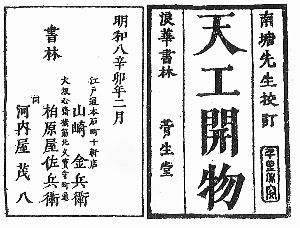 南塘先生校訂
天工開物
浪華書林 菅生堂
明和八辛卯年二月
書林
江戸通本石町十軒店
山崎金兵衛
大坂心齋橋筋北久宝寺町
柏原屋佐兵衛
同
河内屋茂八